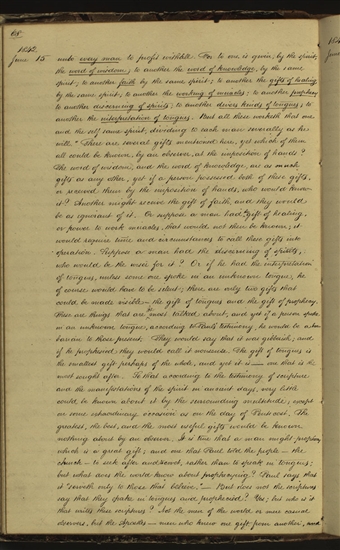 68
1842
June 15 unto every man to profit withall. For to one is given, by the spirit,
the word of wisdom; to another the word of knowledge, by the same
spirit; to another faith by the same spirit; to another the gifts of healing
by the same spirit; to another the working of miracles; to another prophecy
to another discerning of spirits; to another divers kinds of tongues; to
another the interpretation of tongues. But all these worketh that one
and the self same spirit, dividing to each man severally as he
will." There are several gifts mentioned here, yet which of them
all could be known, by an observer, at the imposition of hands?
The word of wisdom, and the word of knowledge, are as much
gifts as any other, yet if a person possessed both of these gifts,
or received them by the imposition of hands, who would know
it? Another might receive the gift of faith, and they would
be as ignorant of it. Or suppose a man had gift of healing,
or power to work miracles, that would not then be known; it
would require time and circumstances to call these gifts into
operation. Suppose a man had the discerning of spirits,
who would be the wiser for it? Or if he had the interpretation
of tongues, unless some one spoke in an unknown tongue, he
of course would have to be silent; there are only two gifts that
could be made visible— the gift of tongues and the gift of prophecy.
These are things that are most talked about, and yet if a person spoke
in an unknown tongue, according to Paul's testimony, he would be a bar-
barian to those present. They would say that it was gibberish; and
if he prophesied, they would call it nonsense. The gift of tongues is
the smallest gift perhaps of the whole, and yet it is one that is the
most sought after. So that according to the testimony of scripture
and the manifestations of the spirit in ancient days, very little
could be known about it by the surrounding multitude, except
on some extraordinary occasion as on the day of Pentecost. The
greatest, the best, and the most useful gifts would be known
nothing about by an observer. It is true that a man might prophesy
which is a great gift, and one that Paul told the people— the
church— to seek after and covet, rather than to speak in tongues;
but what does the world know about prophesying? Paul says that
it "serveth only to those that believe."— But does not the scriptures
say that they spake in tongues and prophesied? Yes; but who is it
that writes these scriptures? Not the men of the world or mere casual
observers, but the Apostles— men who knew one gift from another, and